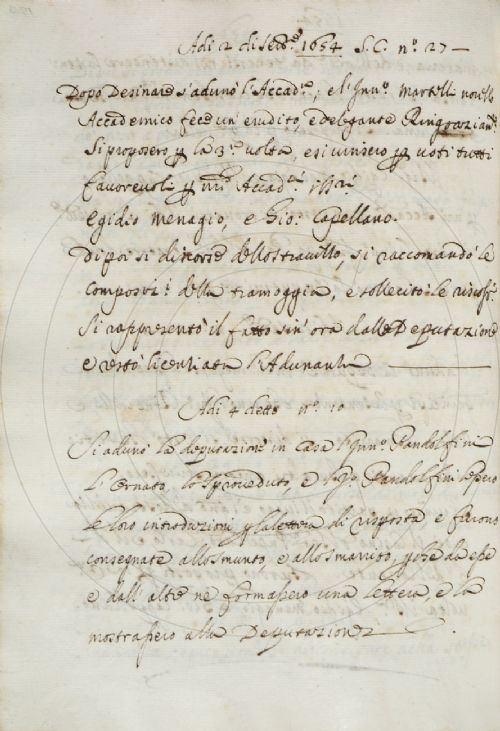 Adi 2 di Sett.e 1654 S.C. n.o 27
Dopo Desinare s'adunò l'Accad.a, e l'Inn.o Martelli novello
Accademico fece un' erudito, e delegante Ringraziam.to
Si proposero p la 3.a volta, e si vinsero p voti tutti
favorevoli p nri Accad.ci i SSri
Egidio Menagio, e Gio: Capellano.
Di poi si discorse dello stravizzo, si raccomandò le
composiz.i della tramoggia, e sollecitò le
Si rappresentò il fatto sin' ora dalla Deputazione
e restò licenziata l'Adunanza
Adi 4 detto n.o 10
Si adunò la deputazione in casa l'Inn.o Pandolfini
L'Ornato, lo Sproveduto, e Pandolfini lessero
le loro introduzioni p la lettera di risposta, e furono
consegnate allo Smunto, e allo Smarrito, p che da esse
e dall' altre ne formassero una lettera, e la
mostrassero alla Deputazione